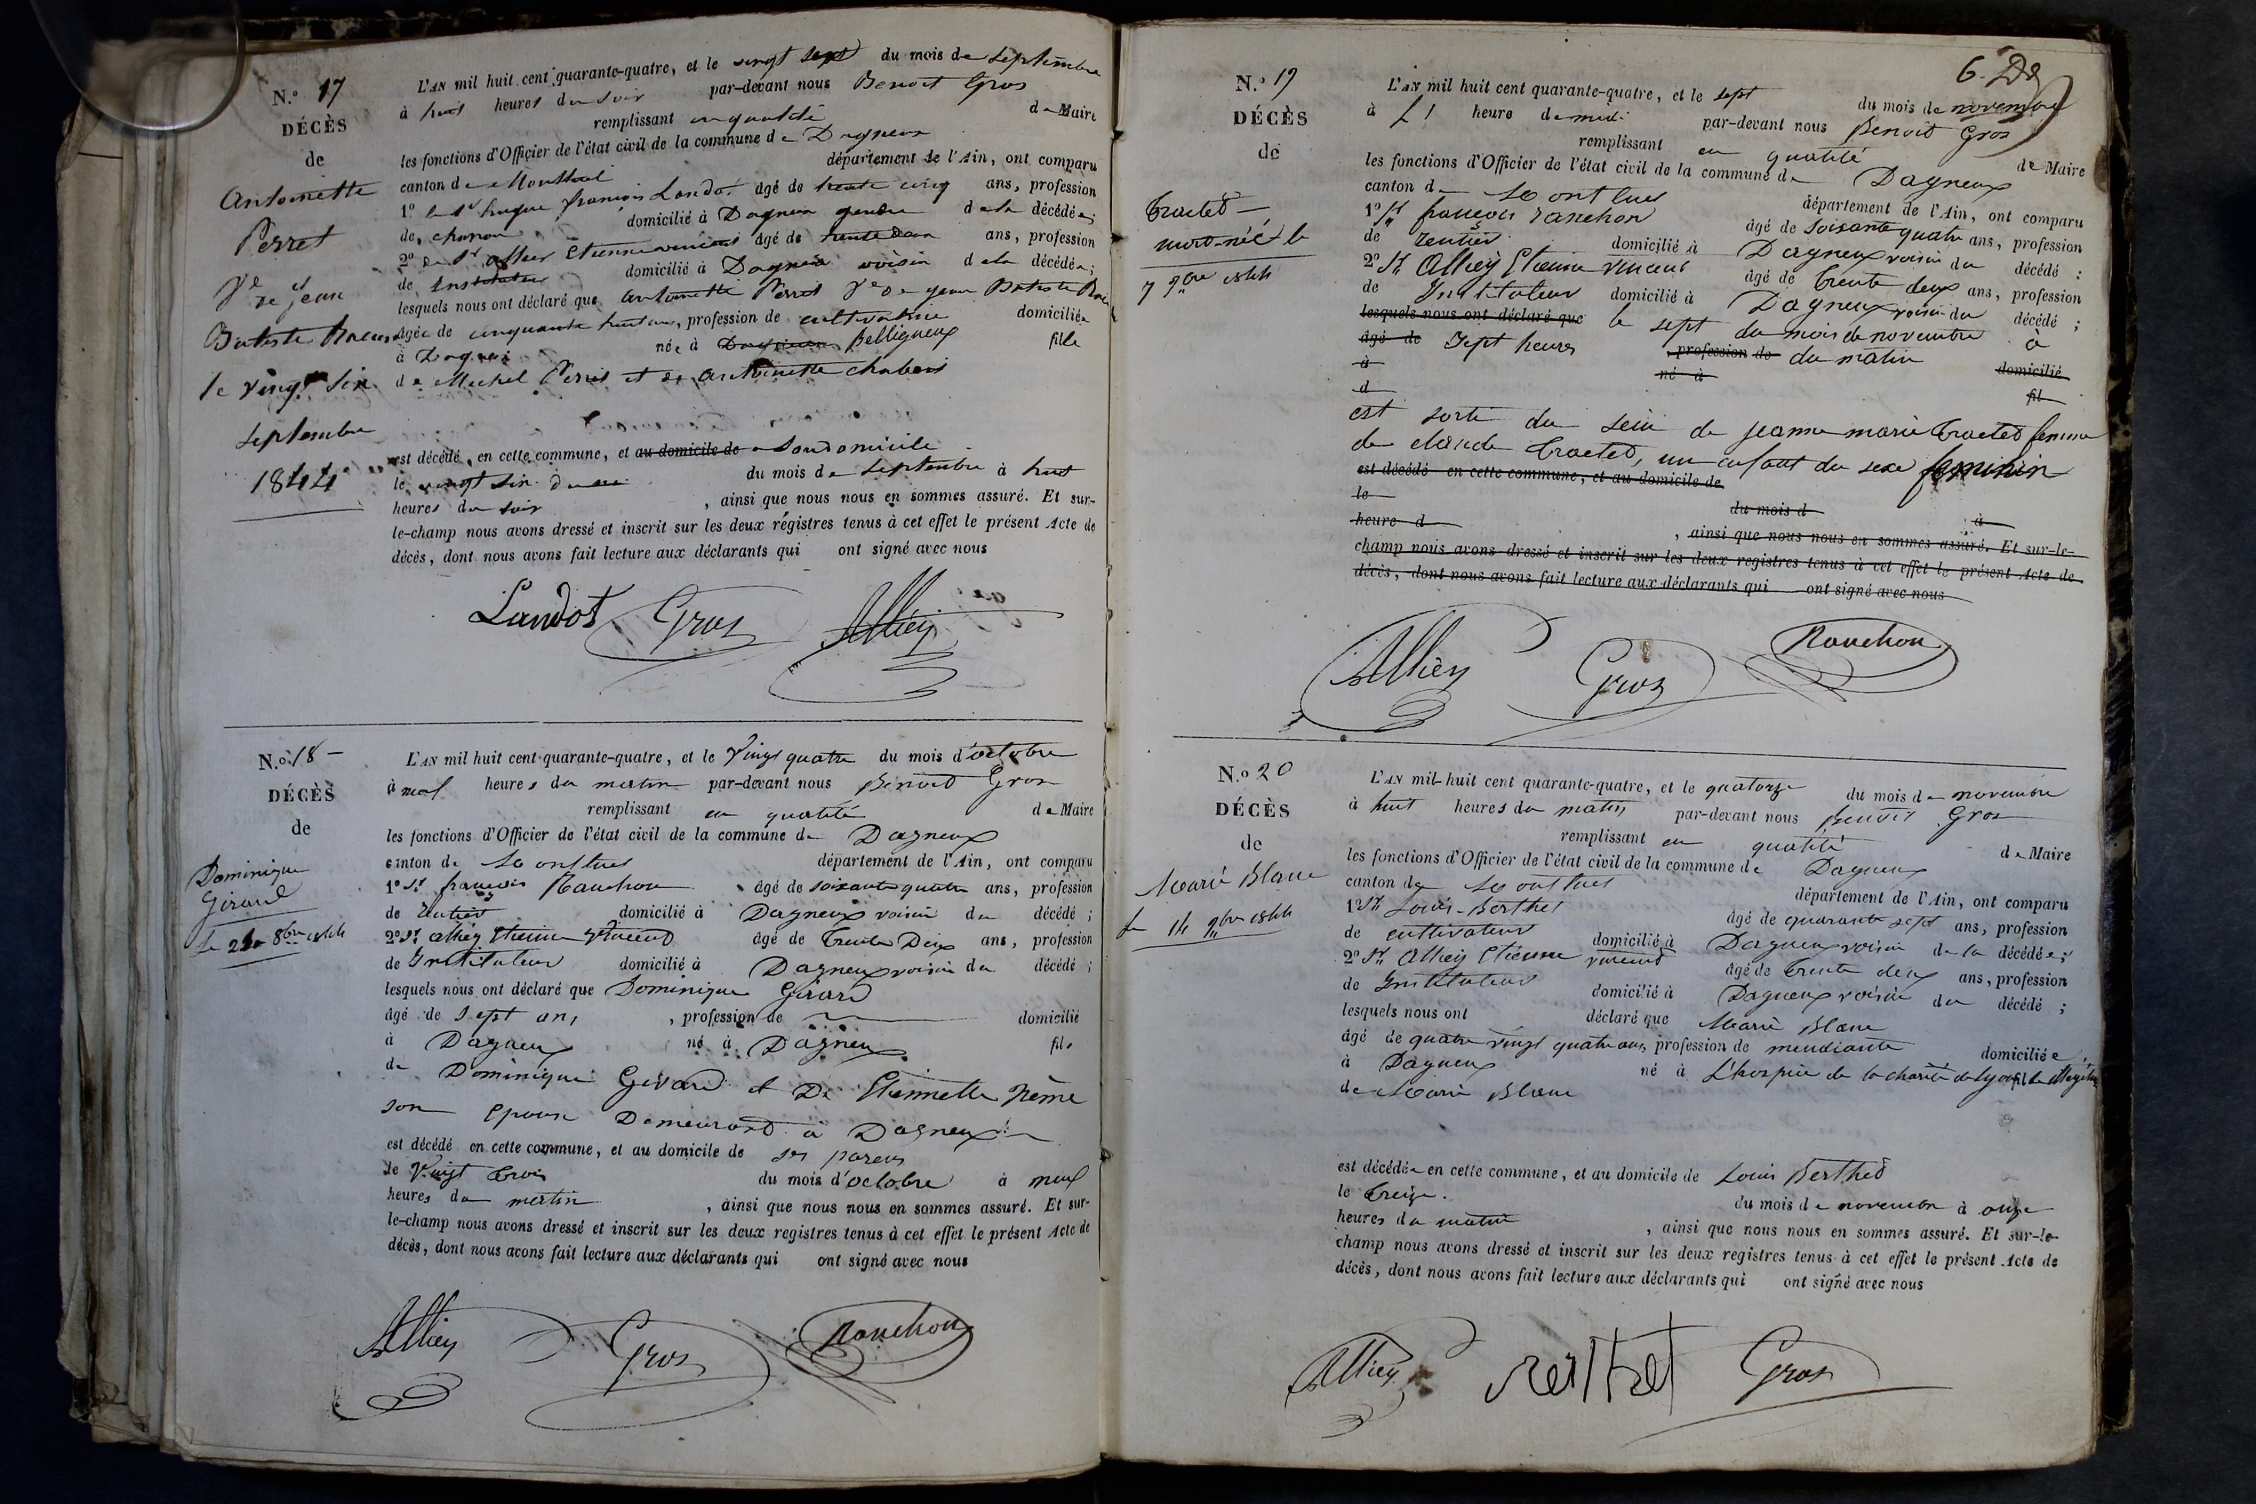 N.o 17
DÉCÈS
de
Antoinette
Perret
Ve de Jean
Batiste
le vingt six
septembre
1844
L'AN mil huit cent quarante-quatre, et le vingt sept du mois de septembre
à huit heures du soir par-devant nous Benoit Gros
remplissant en qualité de Maire
les fonctions d'Officier de l'état civil de la commune de Dagneux
canton de Montluel département de l'Ain, ont comparu
1o le Sr françois Landot âgé de trente cinq ans, profession
de domicilié à Dagneux gendre de la décédée;
2o le Sr Alliey Etienne vincent âgé de trente deux ans, profession
de Instituteur domicilié à Dagneux voisin de la décédée;
lesquels nous ont déclaré que Antoinette Perret Ve de jean Batiste
âgée de cinquante huit ans, profession de cultivatrice domiciliée
à Dagneux née à Dagneux Belligneux fille
de Michel Perret et de Antoinette chabert
est décédé, en cette commune, et au domicile de à son domicile
le vingt six du mois de septembre à huit
heures du soir, ainsi que nous nous en sommes assuré. Et sur-
le-champ nous avons dressé et inscrit sur les deux régistres tenus à cet effet le présent Acte de
décès, dont nous avons fait lecture aux déclarants qui ont signé avec nous
Landot Gros Alliey
N.o 18
DÉCÈS
de
Dominique
Girard
le 8bre 1844
L'AN mil huit cent quarante-quatre, et le Vingt quatre du mois d'octobre
à neuf heures du matin par-devant nous Benoit Gros
remplissant en qualité de Maire
les fonctions d'Officier de l'état civil de la commune de Dagneux
canton de Montluel département de l'Ain, ont comparu
1o Sr françois Ranchon âgé de soixante quatre ans, profession
de Rentier domicilié à Dagneux voisin du décédé;
2o Sr Alliey Etienne Vincent âgé de Trente Deux ans, profession
de Instituteur domicilié à Dagneux voisin du décédé;
lesquels nous ont déclaré que Dominique Girard
âgé de sept ans, profession de domicilié
à Dagneux né à Dagneux fils
de Dominique Girard et De Etiennette Nême
son epouse Demeurant à Dagneux
est décédé en cette commune, et au domicile de ses parens
le Vingt trois du mois d'octobre à neuf
heures du matin, ainsi que nous nous en sommes assuré. Et sur-
le-champ nous avons dressé et inscrit sur les deux registres tenus à cet effet le présent Acte de
décès, dont nous avons fait lecture aux déclarants qui ont signé avec nous
Alliey Gros Ranchon
6.
N.o 19
DÉCÈS
de
Tracted
mort-née le
7 9bre 1844
L'AN mil huit cent quarante-quatre, et le sept du mois de novembre
à heure de midi par-devant nous Benoit Gros
remplissant en qualité de Maire
les fonctions d'Officier de l'état civil de la commune de Dagneux
canton de Montluel département de l'Ain, ont comparu
1o Sr françois Ranchon âgé de soixante quatre ans, profession
de rentier domicilié à Dagneux voisin du décédé;
2o Sr Alliey Etienne vincent âgé de Trente deux ans, profession
de Instituteur domicilié à Dagneux voisin du décédé;
lesquels nous ont déclaré que le sept du mois de novembre à
âgé de sept heures, profession de du matin domicilié
à né à fil
d
est sorti du sein de jeanne marie Tracted femme
de claude Tracted, un enfant du sexe feminin
est décédé en cette commune, et au domicile de
le du mois d à
heure d, ainsi que nous nous en sommes assuré. Et sur-le-
champ nous avons dressé et inscrit sur les deux registres tenus à cet effet le présent Acte de
décès, dont nous avons fait lecture aux déclarants qui ont signé avec nous
Alliey Gros Ranchon
N.o 20
DÉCÈS
de
Marie Blanc
le 14 9bre 1844
L'AN mil huit cent quarante-quatre, et le quatorze du mois de novembre
à huit heures du matin par-devant nous Benoit Gros
remplissant en qualité de Maire
les fonctions d'Officier de l'état civil de la commune de Dagneux
canton de Montluel département de l'Ain, ont comparu
1o Sr Louis Berthet âgé de quarante sept ans, profession
de cultivateur domicilié à Dagneux voisin de la décédée;
2o Sr Alliey Etienne vincent âgé de Trente deux ans, profession
de Instituteur domicilié à Dagneux voisin du décédé;
lesquels nous ont déclaré que Marie Blanc
âgé de quatre vingt quatre ans, profession de mendiante domiciliée
à Dagneux né à L'hospice de la charité de Lyon fille illégitime
de Marie Blanc
est décédée en cette commune, et au domicile de Louis Berthet
le treize du mois de novembre à onze
heures du matin, ainsi que nous nous en sommes assuré. Et sur-le-
champ nous avons dressé et inscrit sur les deux registres tenus à cet effet le présent Acte de
décès, dont nous avons fait lecture aux déclarants qui ont signé avec nous
Alliey Berthet Gros